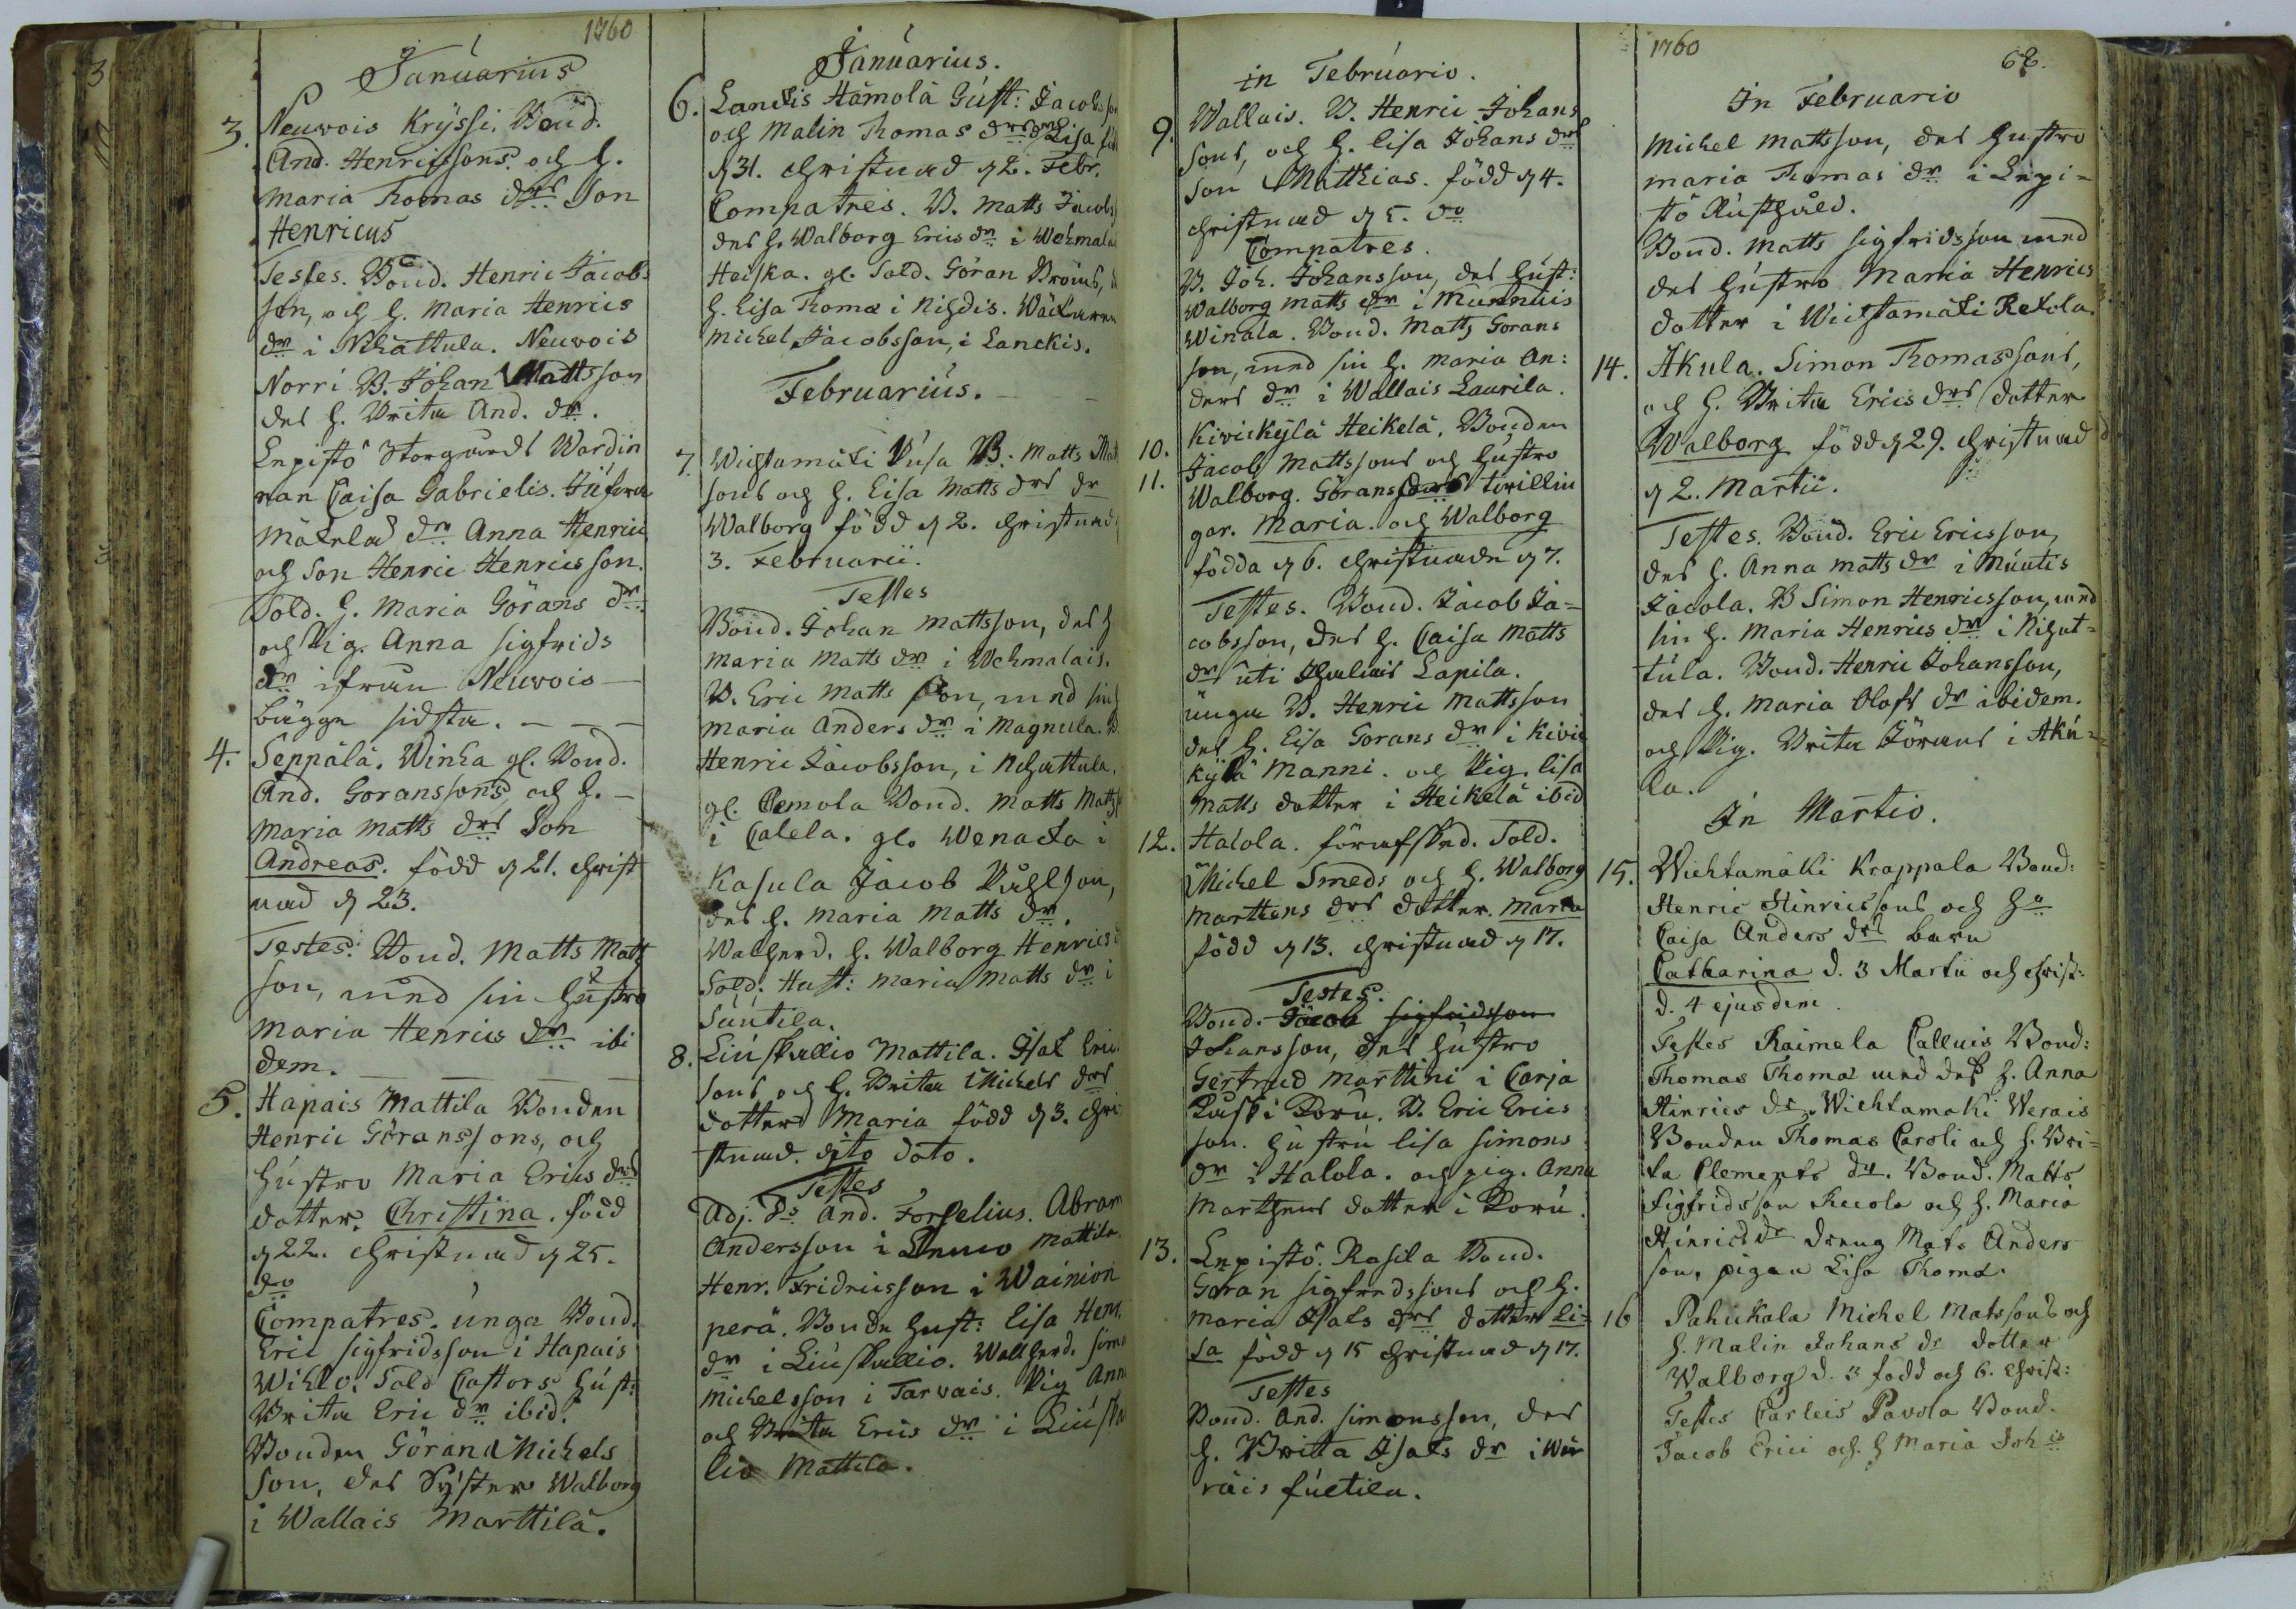 1760
Januarius
3. Neuvois Kryssi. Bond.
And. Henricssons och h.
Maria Thomas drs Son
Henricus
Testes. Bond. Henric Jacobs
son, och h. Maria Henrics
dr i Nihattula. Neuvois
Norri B. Johan Mattsson
des h. Brita And. dr.
Lepistö Storgards Wardin
nan Caisa Gabrielis. Jufru
Mätela dr Anna Henrici
och Son Henric Henricsson.
Sold. h. Maria Görans dr
och Pig. Anna Sigfrids
dr ifrån Neuvois
bägge sidsta.
4. Seppälä. Winka gl. Bond.
And. Goranssons och h.
Maria Matts drs Son
Andreas. född d 21. Christ
nad d 23.
Testes: Bond. Matts Matts
son, med sin hustro
Maria Henrics dr ibi
dem.
5. Hapais Mattila Bonden
Henric Göranssons, och
hustro Maria Erics drs
dotter. Christina. född
d 22. Christnad d 25.
do
Compatres. unga Bond.
Eric Sigfridsson i Hapais
Wiklo. Sold Castors hust:
Brita Eric dr ibid.
Bonden Göran Michels
son, des Syster Walborg
i Wallais Marttila.
Januarius.
6. Lanckis Hämolä Gust: Jacobsson
och Malin Thomas drs dr Lisa född
d 31. Christnad d 2. Febr.
Compatres. B. Matts Jacobs
des h. Walborg Erics dr i Wehmalais
Heiska. gl. Sold. Göran Bröms,
h. Lisa Thomæ i Nihdis.
Michel Jacobsson, i Lanckis.
Februarius.
7. Wichtamäki Pusa B. Matts Matts
sons och h. Lisa Matts drs dr
Walborg född d 2. Christnad
3. Februarii.
Testes
Bond. Johan Mattsson, des h
Maria Matts dr i Wehmalais.
B. Eric Matts son, med sin h
Maria Anders dr i Magnula. B.
Henric Jacobsson, i Nihattula.
gl. Pemola Bond. Matts Matts
i Calela. gl. Wenacka i
Kasula Jacob Påhlson,
des h. Maria Matts dr.
Walherd. h. Walborg Henrics
Sold. Hust: Maria Matts dr i
Suntila.
8. Liuskallio Mattila. Isac Eric
sons och h. Brita Michels drs
dotter Maria född d 3. Chri
stnad. dito dato.
Testes
Adj. Ds And. Forselius. Abram
Andersson i Lemo Mattila.
Henr. Fridricsson i Wainion
perä. Bonde hust: Lisa Henr.
dr i Liuskallio. Wallherd. Simon
Michelsson i Tarvais. Pig Anna
och Brita Erics dr i Liuska
lio Mattila.
in Februario.
9. Wallais. B. Henric Johans
sons, och h. Lisa Johans drs
Son Matthias. född d 4.
Christnad d 5. do
Compatres.
B. Joh. Johansson, des hust:
Walborg Matts dr i Munnuis
Winala. Bond. Matts Gorans
son, med sin h. Maria An:
ders dr i Wallais Laurila.
10. Kivickylä Heikelä. Bonden
11. Jacob Mattssons och hustro
Walborg. Görans drs twillin
gar. Maria och Walborg
födda d 6. Christnade d 7.
Testes. Bond. Jacob Ja=
cobsson, des h. Caisa Matts
dr uti Lapila.
unga B. Henric Mattsson
des h. Lisa Gorans dr i Kivic
kylä Manni. och Pig. Lisa
Matts dotter i Heikelä ibid
12. Halola. förafsked. Sold.
Michel Smeds och h. Walborg
Marttens drs dotter. Maria
född d 13. Christnad d 17.
Testes.
Bond. Jacob Sigfridsson
Johansson, des hustro
Gertrud Marttini i Carja
Kuski Koru. B. Eric Erics
son. hustru Lisa Simons
dr i Halola. och pig. Anna
Marthens dotter i Koru.
13. Lepistö. Rasila Bond.
Goran Sigfredssons och h.
Maria Isaks drs dotter Li=
sa född d 15 Christnad d 17.
Testes
Bond. And. Simonsson, des
h. Britta Isaks dr i Wir
räis
1760 68.
In Februario
Michel Mattsson, des hustro
Maria Thomas dr i Lepi=
stö Rusthåld.
Bond. Matts Sigfridsson med
des hustro Maria Henrics
dotter i Wichtamäki Rekola.
14. Akula. Simon Thomassons,
och h. Brita Erics drs dotter
Walborg född d 29. Christnad
d 2. Martii.
Testes. Bond. Eric Ericsson,
des h. Anna Matts dr i Muntis
Jacola. B Simon Henricsson, med
sin h. Maria Henrics dr i Nihat=
tula. Bond. Henric Johansson,
des h. Maria Olofs dr ibidem.
och Pig. Brita Jörans i Aku=
la.
In Martio.
15. Wichtamäki Krappala Bond:
Henric Hinricssons och Hu
Caisa Anders drs barn
Catharina d. 3 Martii och Christ:
d. 4 ejusdem.
Testes Raimela Calluis Bond:
Thomas Thomæ med des h. Anna
Hinrics dr. Wichtamäki Werais
Bonden Thomas Caroli och h. Bri=
ta Clements dr. Bond. Matts
Sigfridsson Recola och h. Maria
Hinrics dr dreng Mats Anders
son, pigan Lisa Thomæ.
16 Pahickala Michel Matssons och
h. Malin Johans dr dotter
Walborg d. 3 född och 6. Christ:
Testes Carleis Pavola Bond.
Jacob Erici och h Maria Joh is